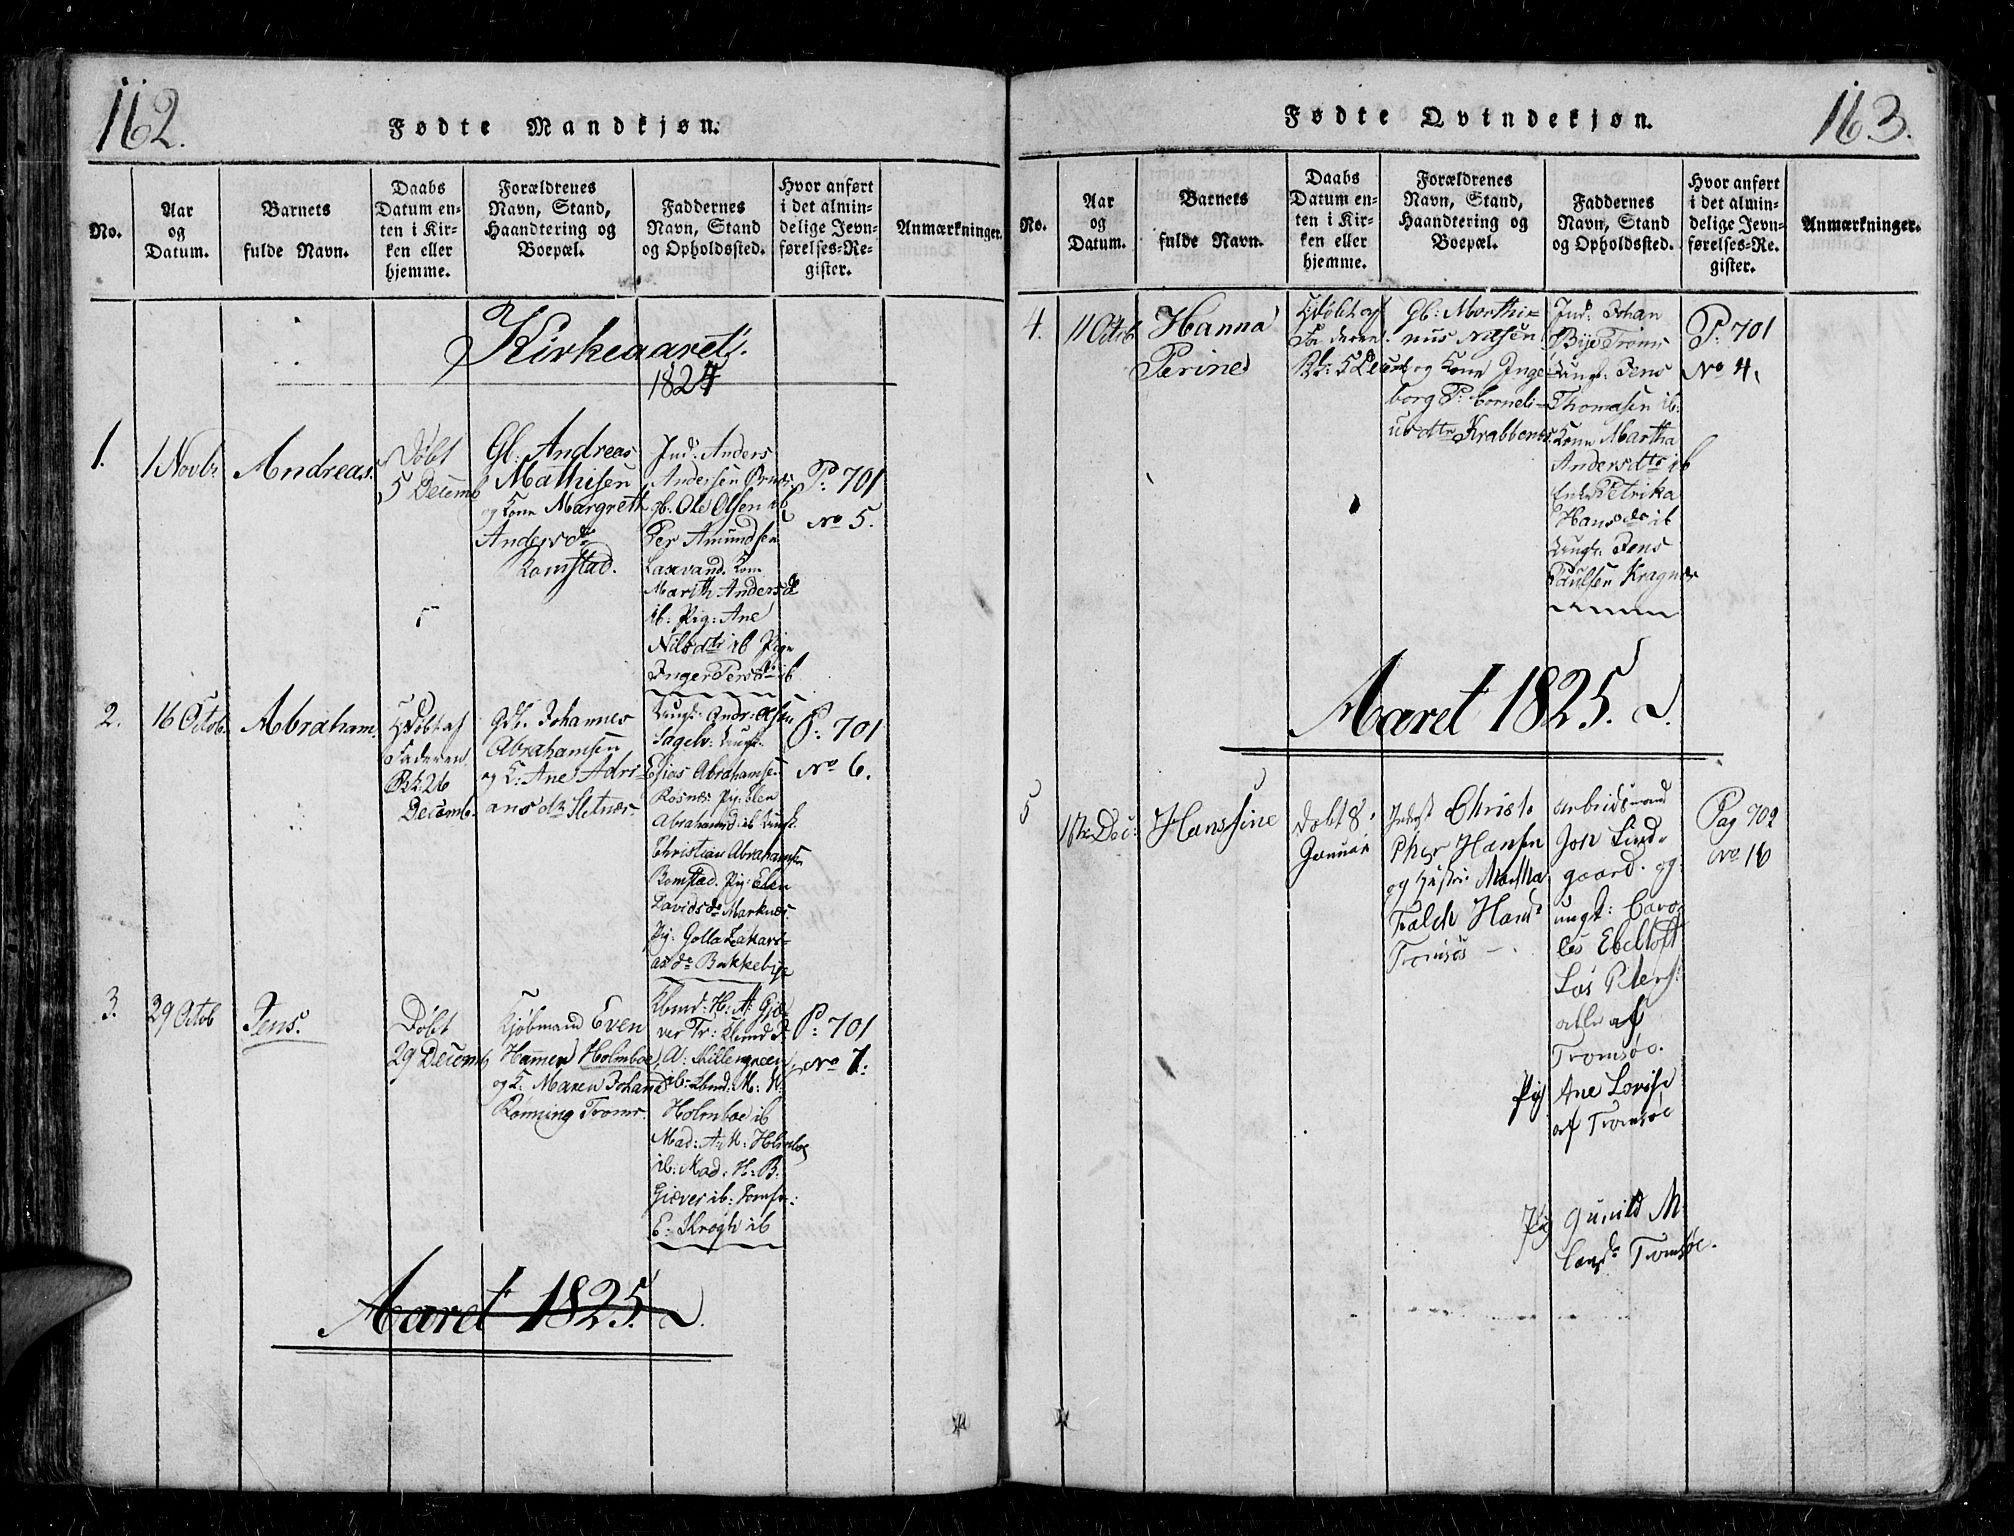 162.
Fødte Mandkjøn.
No.
Aar
og
Datum.
Barnets
fulde Navn.
Daabs
Datum en-
ten i Kir-
ken eller
hjemme.
Forældrenes
Navn, Stand,
Haandtering og
Boepæl.
Faddernes
Navn, Stand
og Opholdssted.
Hvor anført
i det almin-
delige Jevn-
førelses-Re-
gister.
Anmærkninger.
Kirkeaaret
1824
1.
1 Novbr
Andreas.
Døbt
5 Decemb
Gb. Andreas
Mathisen
og Kone Margreth
Andersd
Komstad.
Ind. Anders
Andersen
gb. Ole Olsen ib
Per Amundsen
Laxevand. Kone
Marith Andersd
ib. Pig: Ane
Nilsdtr ib Pige
Inger Persd ib
P: 701
No 5.
2.
16 Octob.
Abraham.
Hdøbt af
Faderen
Bk: 26
Decemb.
Gdb. Johannes
Abrahamsen
og K: Ane Adri-
ans dtr Sletnær
Ungk: Andr: Olsen
Sagelv: Ungk:
Elias Abrahamsen
Rosnær: Pig: Elen
Abrahamsd: ib Ungk.
Christian Abrahamsen
Komstad. Pig: Elen
Davidsd Marknær.
Pig: Golla Zakari-
asd Bakkebye
P: 701
No 6.
3.
29 Octob
Jens.
Døbt
29 Decemb
Kjøbmand Even
Hammer Holmboe
og K. Maren Johanne
Rønning Troms.
Kbmd: H: A: Gjæ-
ver Tr: Kbmd P.
A: Killengreen
ib: Kbmd: M: W.
Holmboe ib
Mad: A: M: Holmboe
ib: Mad: H: B.
Giæver ib: Jomfr:
E: Krogh ib
P: 701
No 7.
Aaret 1825.
163.
Fødte Qvindekjøn.
No.
Aar
og
Datum.
Barnets
fulde Navn.
Daabs
Datum en-
ten i Kir-
ken eller
hjemme.
Forældrenes
Navn, Stand,
Haandtering og
Boepæl.
Faddernes
Navn, Stand
og Opholdssted.
Hvor anført
i det almin-
delige Jevn-
førelses-Re-
gister.
Anmærkninger.
4.
11 Octob
Hanna
Perine
Hdøbt af
Faderen.
Bk: 5 Decemb
Gb: Morthi-
nus Nilsen
og Kone Inge-
borg P: Corneli-
usdtr Krabbenæs
Ind: Johan
Bye Troms
Ungk: Jens
Thomasen ib:
Kone Martha
Andersdtr ib
Enke Petrika
Hansd ib
Ungk: Jens
Paulsen Kragnæs
P: 701
No 4.
Aaret 1825.
5
16de Dec:
Hansine
Døbt 8.
Januar
Indst Christo
Pher Hansen
og Hustru Martha
Falch Hansd
Tromsøe
Arbeidsmand
Joh Lind-
gaard. og
ungk: Caro-
les Ebeltoft
Los Peters:
alle af
Tromsøe.
Pig Ane Lovise
af Tromsøe
Pig Gunild M.
Tromsøe.
Pag 702
No 16